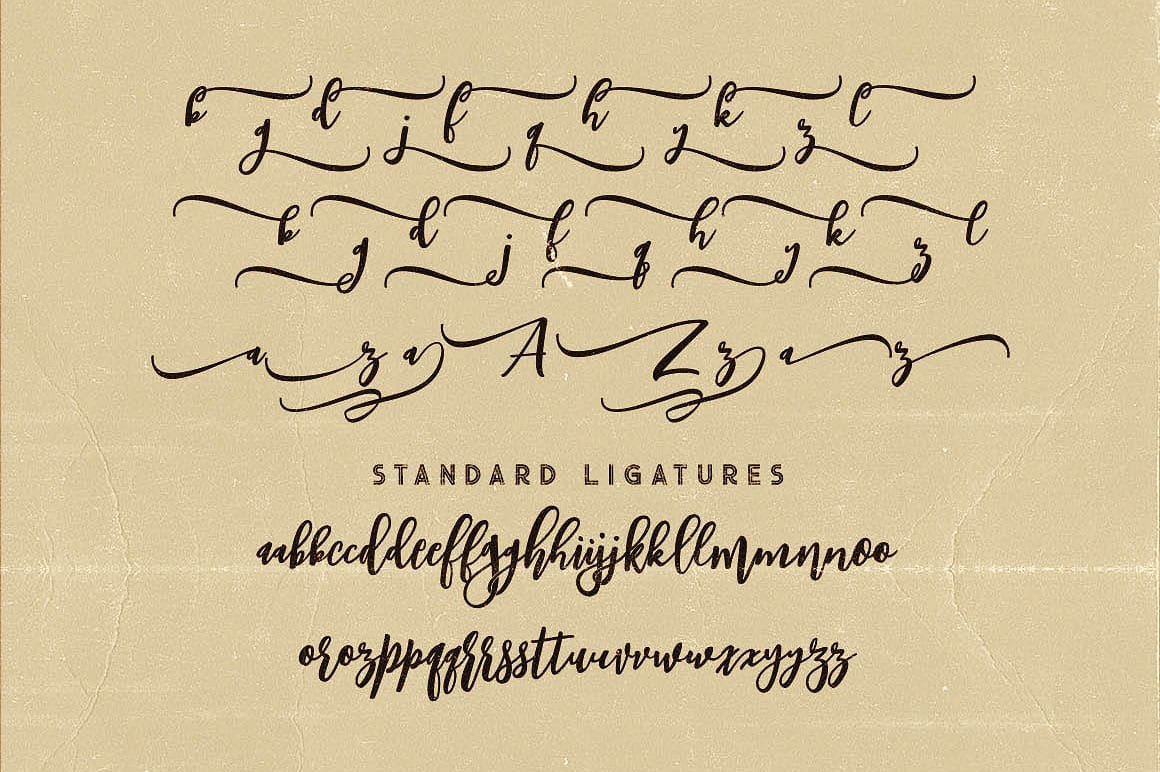 b d f h k l
g j q y z
b d f h k l
g j q y z
a z a A Z z a z
STANDARD LIGATURES
aabbccddeeffgghhiijjkkllmmnnoo
orozppqqrrssttuuvvwwxxyyzz